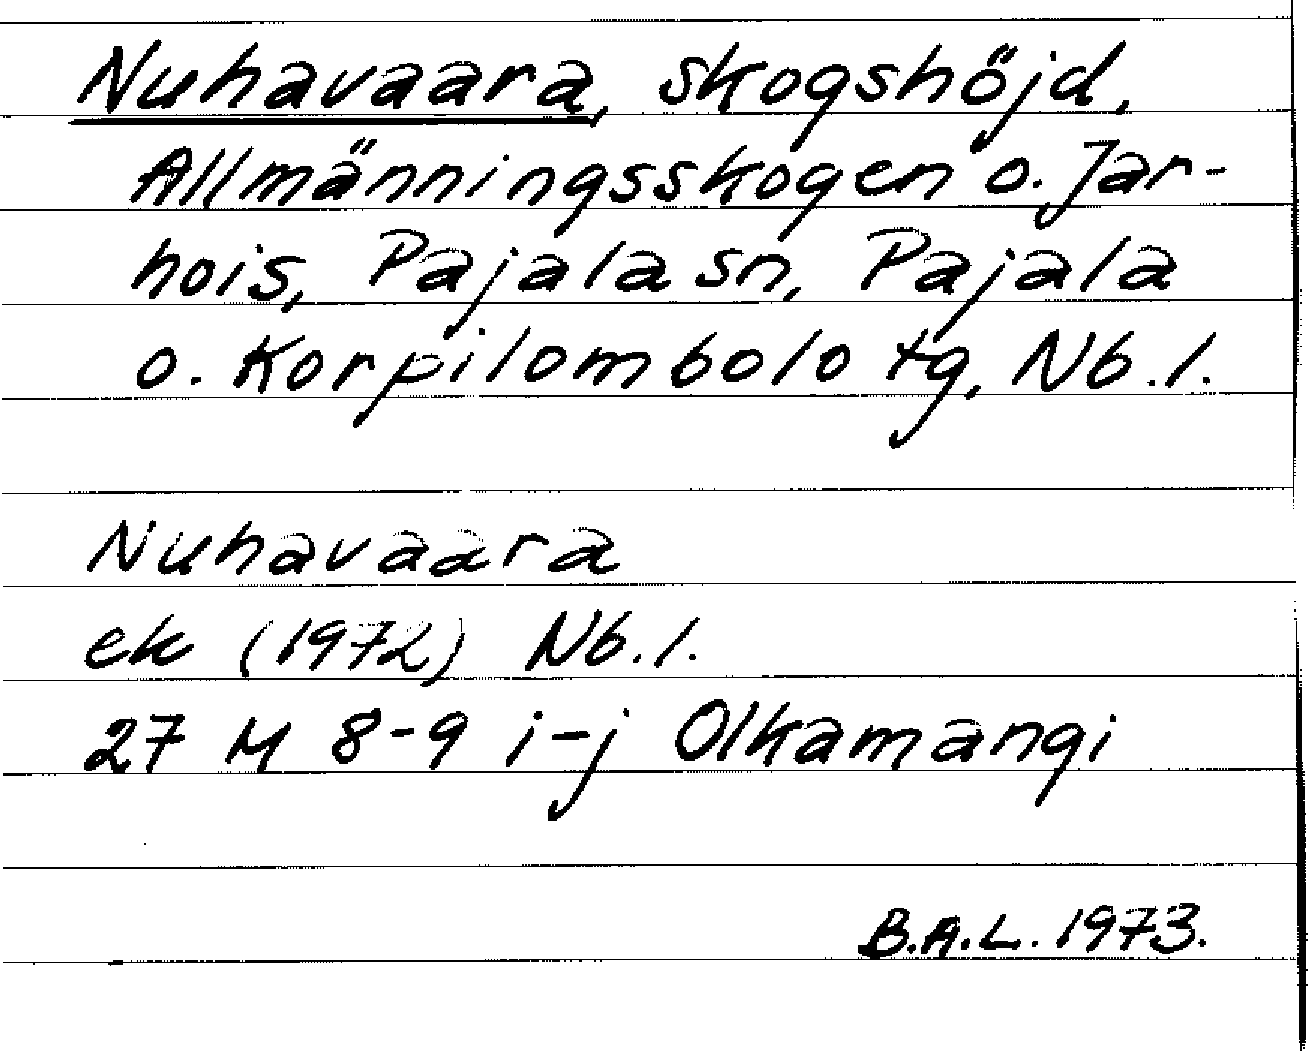 Nuhavaara, skogshöjd,
Allmänningsskogen o. Jar-
hois, Pajala sn, Pajala
o. Korpilombolo tg, Nb.l.
Nuhavaara
ek (1972) Nb.l.
27 M 8-9 i-j Olkamangi
B.A.L. 1973.